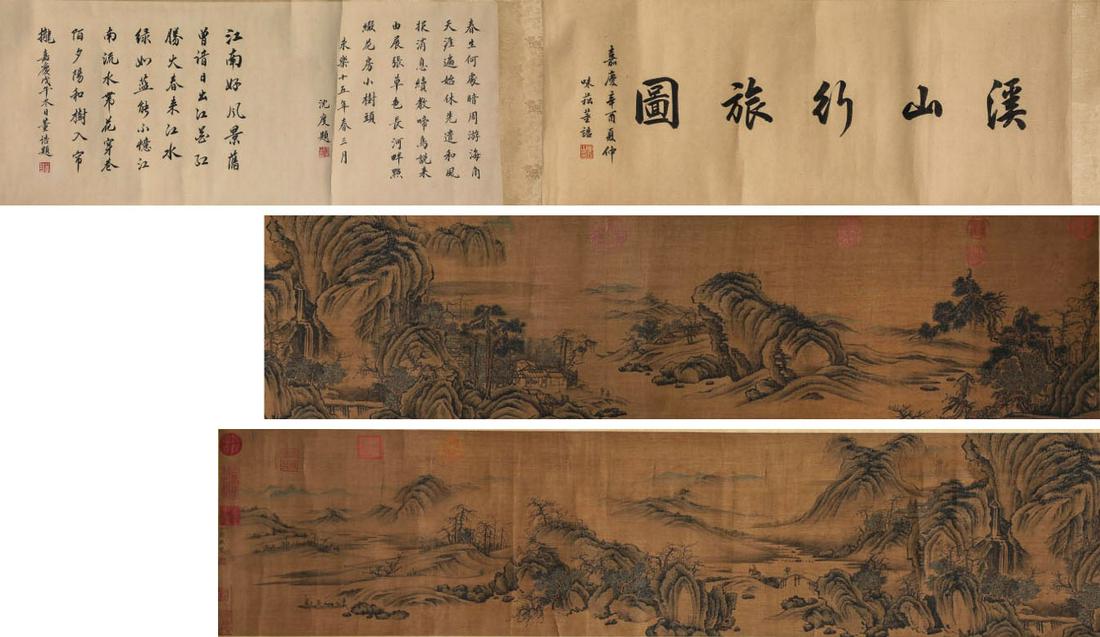 溪山行旅圖
嘉慶辛酉夏仲
董誥
春生何處暗周游海角
天涯遍始休先遣和風
報消息續教啼鳥說来
由展張草色長河畔點
綴花房小樹頭
永樂十五年春三月
沈度題
江南好風景舊
曾諳日出江花紅
勝火春来江水
綠如藍能不憶江
南流水帶花穿巷
陌夕陽和樹入帘
櫳嘉慶戊午冬日董誥題